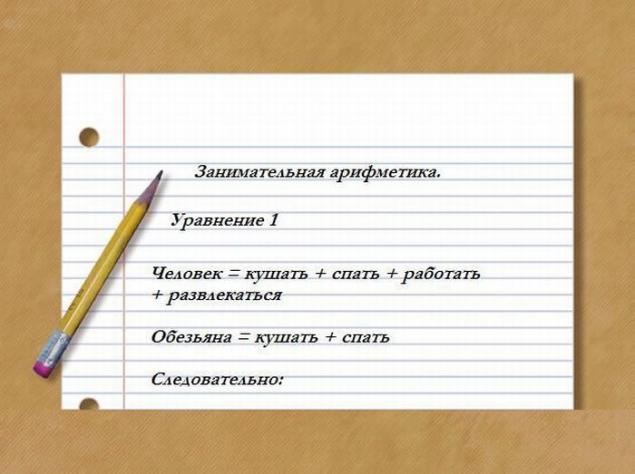 Занимательная арифметика.
Уравнение 1
Человек = кушать + спать + работать
+ развлекаться
Обезьяна = кушать + спать
Следовательно: